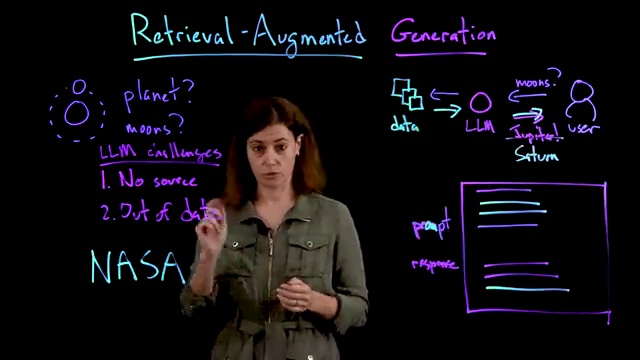 Retrieval-Augmented Generation
planet?
moons?
LLM challenges
1. No source
2. Out of date
NASA
moons?
data
LLM
Jupiter!
user
Saturn
prompt
response